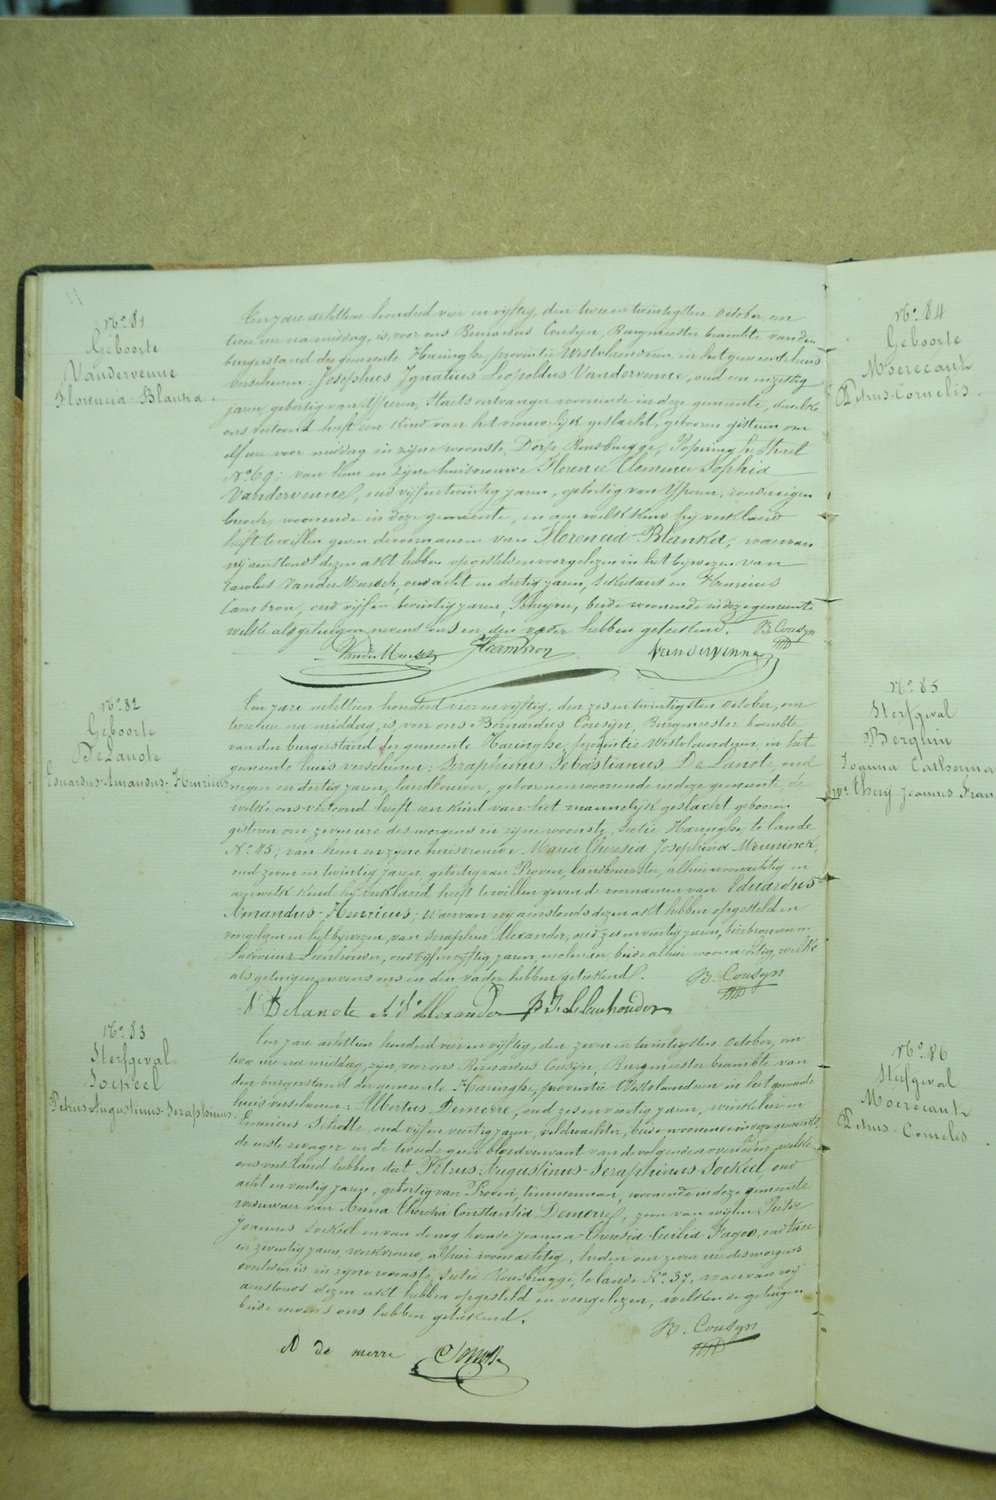 No 81
Geboorte
Vandervenne
Florencia Blanka.
Een jare achttien honderd vier en vijftig, den twee en twintigsten October, om
twee ure na middag, is, voor ons Bernardus Cousyn, Burgmeester beambte van den
burgerstand der gemeente Haringhe, provintie Westvlaenderen, in het gemeente huis
verschenen: Josephus Ignatius Leopoldus Vandervenne, oud een en zestig
jaren, geboortig van Yperen, Staets ontvanger woonende in deze gemeente, dewelke
ons vertoond heeft een kind van het vrouwelijk geslacht, geboren gisteren om
elf ure voor middag in zijne woonste, Dorp Rousbrugge, Poperinghe straet
No 69; van hem en zijne huisvrouwe Florence Clemence Sophia
Vandervenne, oud vijf en twintig jaren, geboortig van Yperen, zonder eigen
beroep, woonende in deze gemeente, en aen welk kind hij verklaerd
heeft te willen geven de voornamen van Florencia-Blanka; waervan
wij aenstonds dezen akt hebben opgesteld en voorgelezen in het bijwezen van
Carolus Vander Meersch, oud acht en dertig jaren, Sekretaris en Henricus
Cambron, oud vijf en twintig jaren, beide woonende in deze gemeente
welke als getuigen nevens ons en den vader hebben geteekend. B. Cousyn
Vander Meersch HCambron Vandervenne
No 82
Geboorte
DeLanote
Eduardus-Amandus-Henricus
Een jare achttien honderd vier en vijftig, den zes en twintigsten October, om
twee ure na middag, is, voor ons Bernardus Cousyn, Burgmeester beambte
van den burgerstand der gemeente Haringhe, provintie Westvlaenderen, in het
gemeente huis verschenen: Seraphinus Sebastianus De Lanote, oud
negen en dertig jaren, landbouwer, geboren en woonende in deze gemeente, de
welke ons vertoond heeft een kind van het mannelijk geslacht geboren
gisteren om zeven ure des morgens in zijne woonste, Sectie Haringhe, te lande
No 85; van hem en zijne huisvrouwe Maria Theresia Josephina Meuninck,
oud zeven en twintig jaren, geboortig van Proven, landbouwster, alhier woonachtig en
aen welk kind hij verklaerd heeft te willen geven de voornamen van Eduardus
Amandus-Henricus; waervan wij aenstonds dezen akt hebben opgesteld en
voorgelezen in het bijwezen van Seraphin Alexander, oud zes en veertig jaren, en
Leenhouder, oud vijf en vijftig jaren, molenaer beide alhier woonachtig, welke
als getuigen nevens ons en den vader hebben geteekend. B. Cousyn
Delanote Alexander Leenhouder
No 83
Sterfgeval
Sockeel
Petrus-Augustinus-Seraphinus.
Een jare achttien honderd vier en vijftig, den zeven en twintigsten October, om
twee ure na middag, zijn, voor ons Bernardus Cousyn, Burgmeester beambte van
den burgerstand der gemeente Haringhe, provintie Westvlaenderen in het gemeente
huis verschenen: Albertus Demerre, oud zes en veertig jaren, winkelier en
Scholle, oud vijf en veertig jaren, veldwachter, beide woonende in deze gemeente,
de eerste zwager en de tweede geen bloedverwant van de volgende overledene, welke
ons verklaerd hebben dat Petrus-Augustinus-Seraphinus Sockeel, oud
acht en veertig jaren, geboortig van Proven, timmerman, woonende in deze gemeente
weduwaer van Anna Theresia Constantia Demerre, zoon van wijlen Pieter
Joannes Sockeel en van de nog levende Joanna-Theresia-Cecilia Fagoo, oud
en zeventig jaren, alhier woonachtig, heden om zeven ure des morgens
overleden is in zijne woonste, Sectie Rousbrugge, te lande No 37, waervan wij
aenstonds dezen akt hebben opgesteld en voorgelezen, welken de getuigen
beide nevens ons hebben geteekend.
B. Cousyn
A de merre
No 84
Geboorte
Moerecant
Petrus-Cornelis.
No 85
Sterfgeval
Berquin
Joanna Catharina
we Thery Joannes Fran
No 86
Sterfgeval
Moerecant
Petrus-Cornelis.